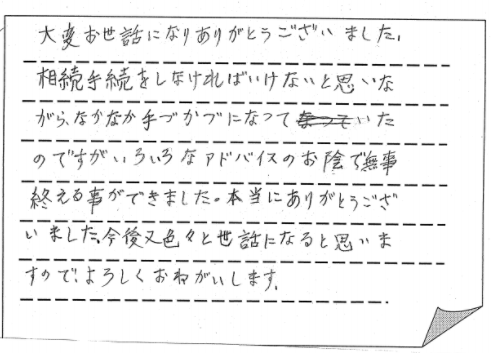 大変お世話になりありがとうございました。
相続手続をしなければいけないと思いな
がら、なかなか手づかづになっていた
のですがいろいろなアドバイスのお陰で無事
終える事ができました。本当にありがとうござ
いました。今後又色々と世話になると思いま
すので、よろしくおねがいします。